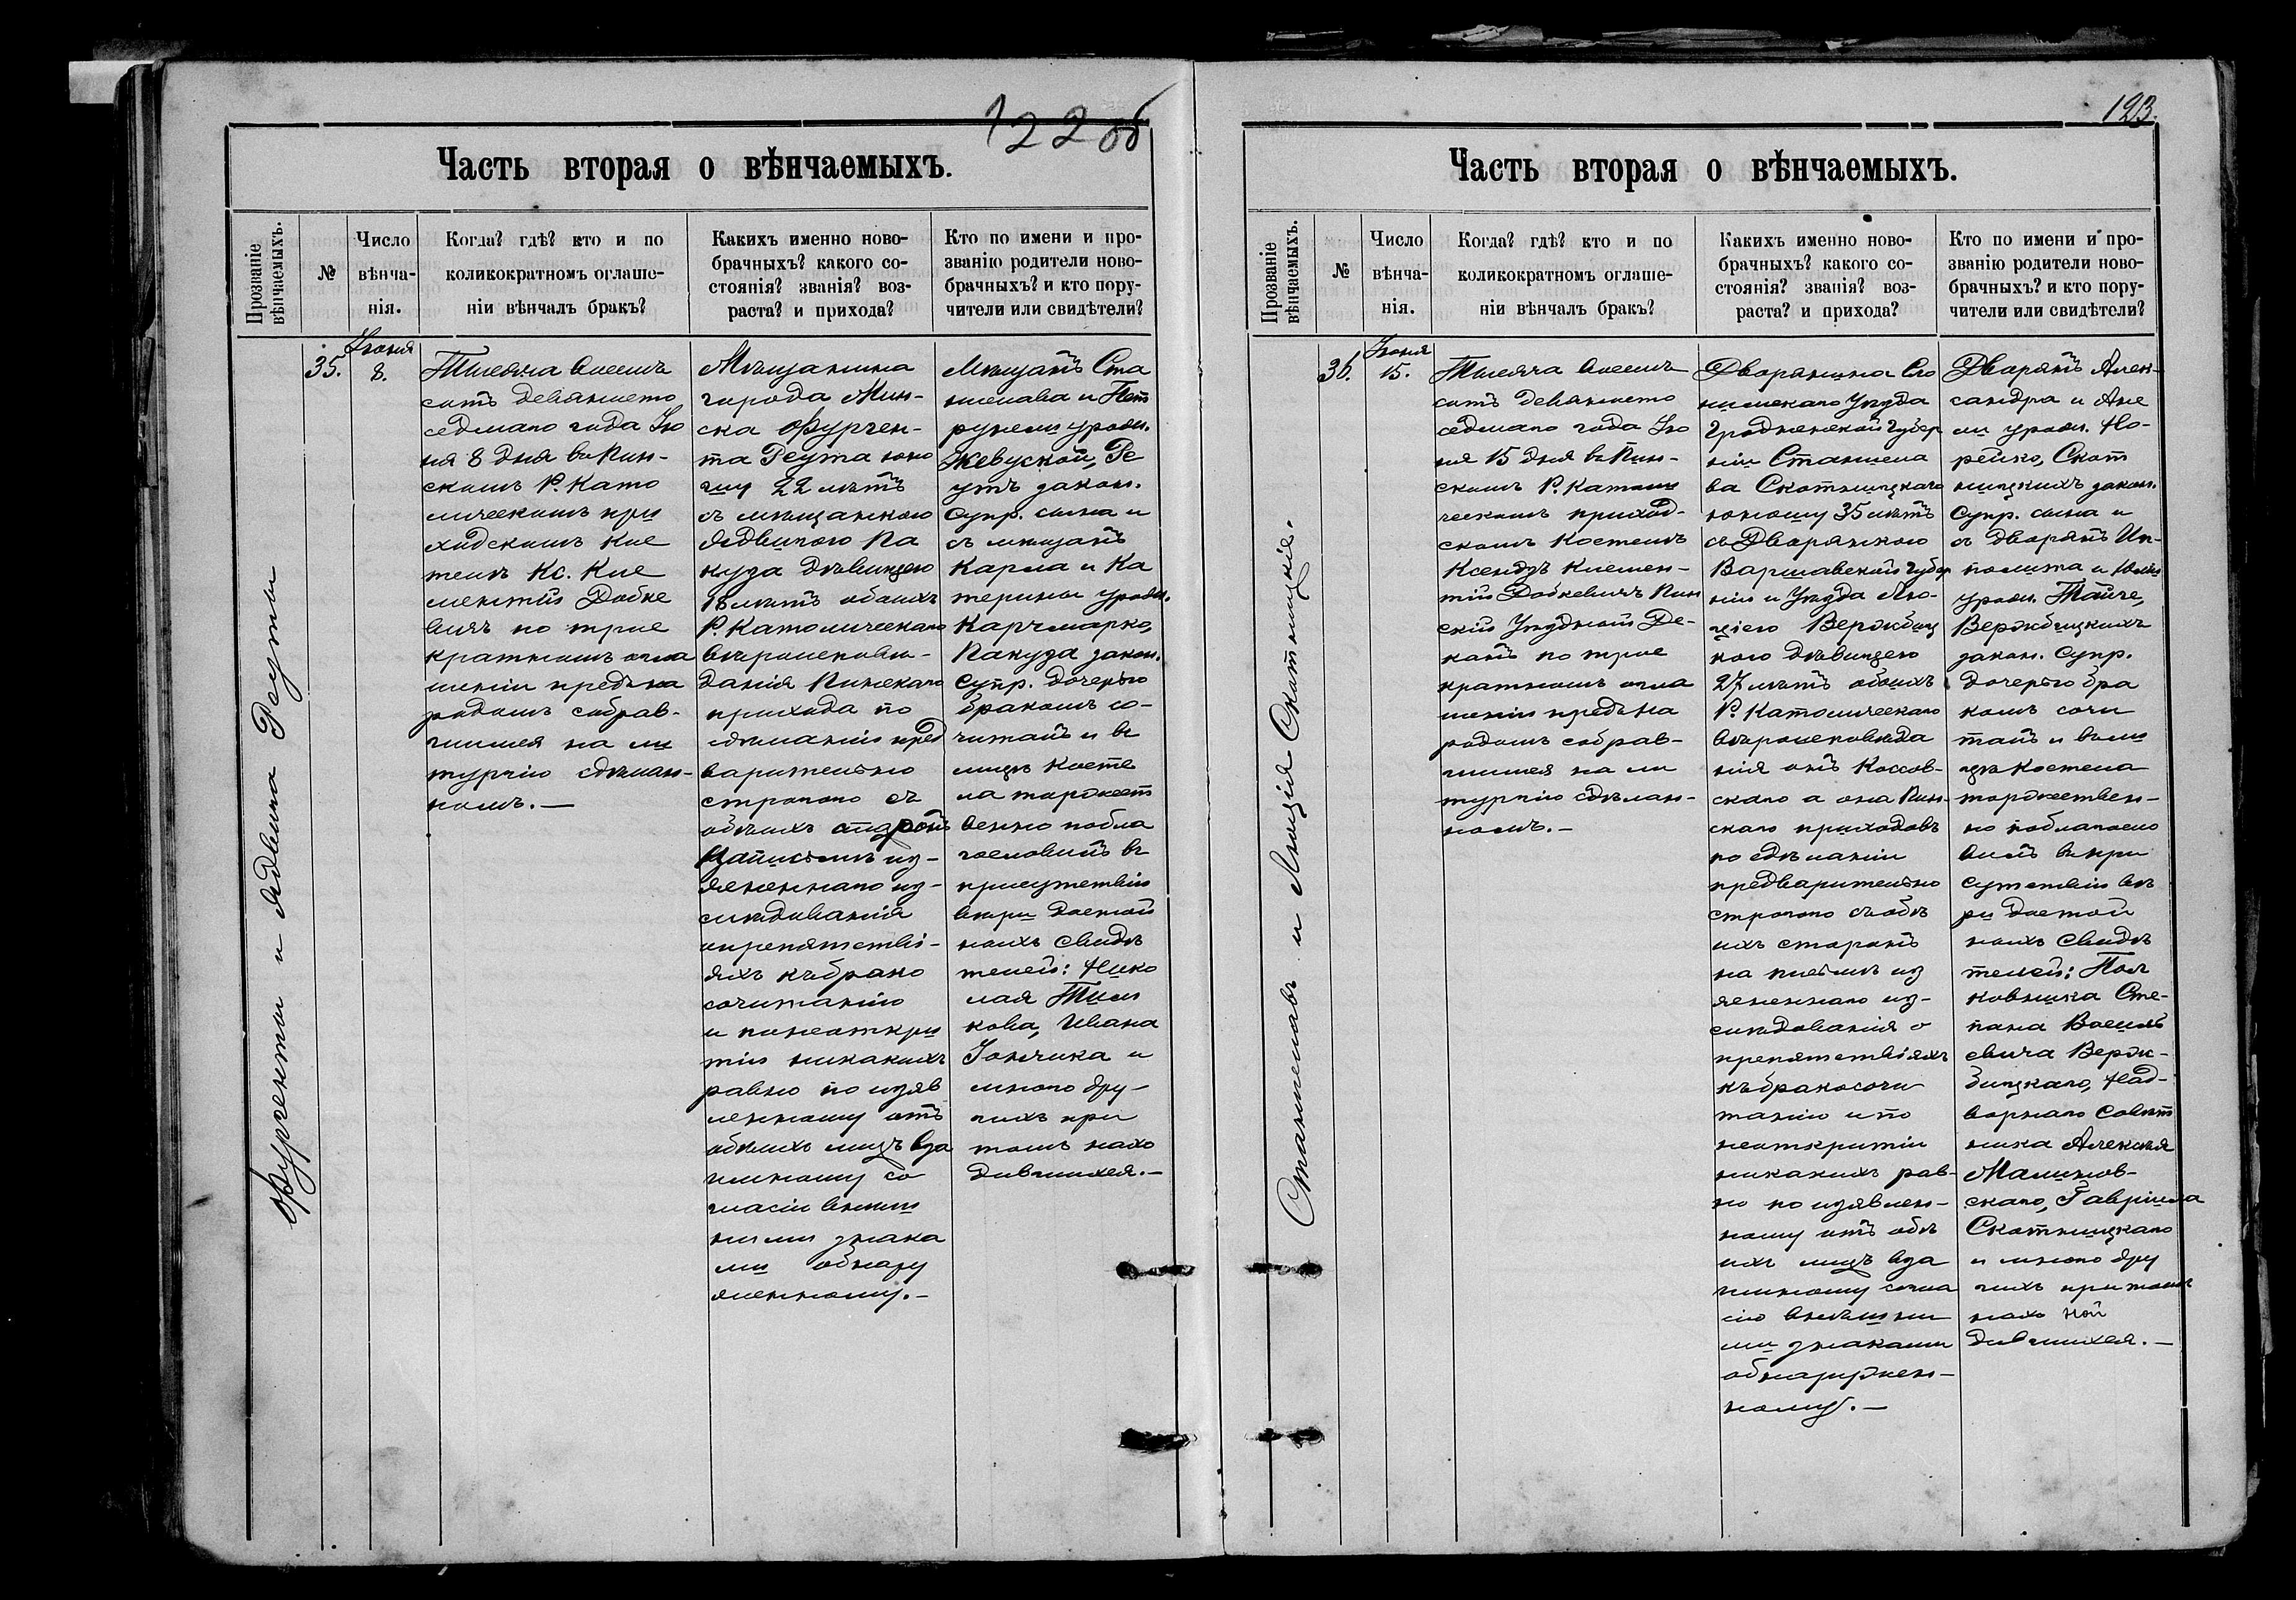 122 об
Часть вторая о вѣнчаемыхъ.
Прозваніе вѣнчаемыхъ.
№
Число вѣнча-
нія.
Когда? гдѣ? кто и по
коликократномъ оглаше-
ніи вѣнчалъ бракъ?
Какихъ именно ново-
брачныхъ? какого со-
стоянія? званія? воз-
раста? и прихода?
Кто по имени и про-
званію родители ново-
брачныхъ? и кто пору-
чители или свидѣтели?
и Ядвига Реуты
35.
Іюня
8.
Тысяча восемь
сотъ девяносто
седмаго года Iю
ня 8 дня въ Пин-
скомъ Р. Като
лическомъ при
ходскомъ Кос
телѣ Кс. Кле
ментій Добке
вичъ по трое
кратномъ огла
шеніи предъ на
родомъ собрав-
шимся на ли
тургію сдѣлан-
номъ.—
Мѣщанина
города Мин-
ска Фурген-
та Реута юно
шу 22 лѣтъ
съ мѣщанкою
Ядвигою Па
куза дѣвицею
18 лѣтъ обоихъ
Р. Католическаго
вѣроисповѣ-
данія Пинскаго
прихода по
сдѣланіи пред
варительно
строгого съ
обѣихъ сторонъ
изслѣдованія
опрепятстві-
яхъ къ брако
сочитанію
и понеоткры
тіи никакихъ
равно по изяв
ленному отъ
обѣихъ лицъ вза
имному со
гласію внѣш
ними знака
ми обнару
женному.—
Мѣщанъ Ста
нислава и Пет
рунели урожд.
Жевуской, Ре
утъ закон.
Супр. сына и
съ мѣщанъ
Карла и Ка
терины урожд.
Карчмарко,
Пакуза закон.
Супр. дочерью
бракомъ со-
читалъ и въ
лицѣ Косте
ла торжест
венно побла
гословилъ въ
присутствіи
вѣри достой
ныхъ свидѣ
телей: Нико
лая Тим
кова, Ивана
Іончика и
много дру-
гихъ при
томъ нахо
дившихся.—
123.
Часть вторая о вѣнчаемыхъ.
Прозваніе вѣнчаемыхъ.
№
Число вѣнча-
нія.
Когда? гдѣ? кто и по
коликократномъ оглаше-
ніи вѣнчалъ бракъ?
Какихъ именно ново-
брачныхъ? какого со-
стоянія? званія? воз-
раста? и прихода?
Кто по имени и про-
званію родители ново-
брачныхъ? и кто пору-
чители или свидѣтели?
Станиславъ и Люція Скотницкіе.
36.
Іюня
15.
Тысяча восемь
сотъ девяносто
седмаго года Iю
ня 15 дня въ Пин-
скомъ Р. Католи
ческомъ приход-
скомъ Костелѣ
Ксендзъ Клемен-
тій Добкевичъ Пин
скій Уѣздной Де-
канъ по трое
кратномъ огла
шеніи предъ на
родомъ собрав-
шимся на ли
тургію сдѣлан-
номъ.—
Дворянина Сло
нимскаго Уѣзда
Гродненской Губер
ніи Станисла
ва Скотницкаго
юношу 35 лѣтъ
съ Дворянкою
Варшавской Губер
ніи и Уѣзда Лю-
ціею Вержбиц
кого дѣвицею
27 лѣтъ обоихъ
Р. Католическаго
вѣроисповѣда
нія онъ Коссов-
скаго а она Пин-
скаго приходовъ
по сдѣланіи
предварительно
строгого съ обѣ
ихъ сторонъ
на письмѣ из
ясненнаго из-
слѣдованія о
препятствіяхъ
къ бракосочи
танію и по
неоткрытіи
никакихъ рав-
но по изявлен-
ному отъ обѣ
ихъ лицъ вза
имному согла
сію внѣшни
ми знаками
обнаружен-
ному.—
Дворянъ Алек-
сандра и Ане
ли урожд. Но-
рейко, Скот
ницкихъ закон.
Супр. сына и
съ дворянъ Ип-
полита и Юліи
урожд. Тайче,
Вержбицкихъ
закон. Супр.
дочерью бра
комъ сочи
талъ и въ ли
цѣ Костела
торжествен-
но поблагосло
вилъ въ при
сутствіи вѣ
ри достой
ныхъ свидѣ
телей: Пол
ковника Сте-
пана Василь
евича Верж-
бицкаго, Над-
ворнаго Совѣт
ника Алексѣя
Малинов-
скаго, Гавріила
Скотницкаго
и много дру
гихъ притомъ
нахо ной
дившихся.—